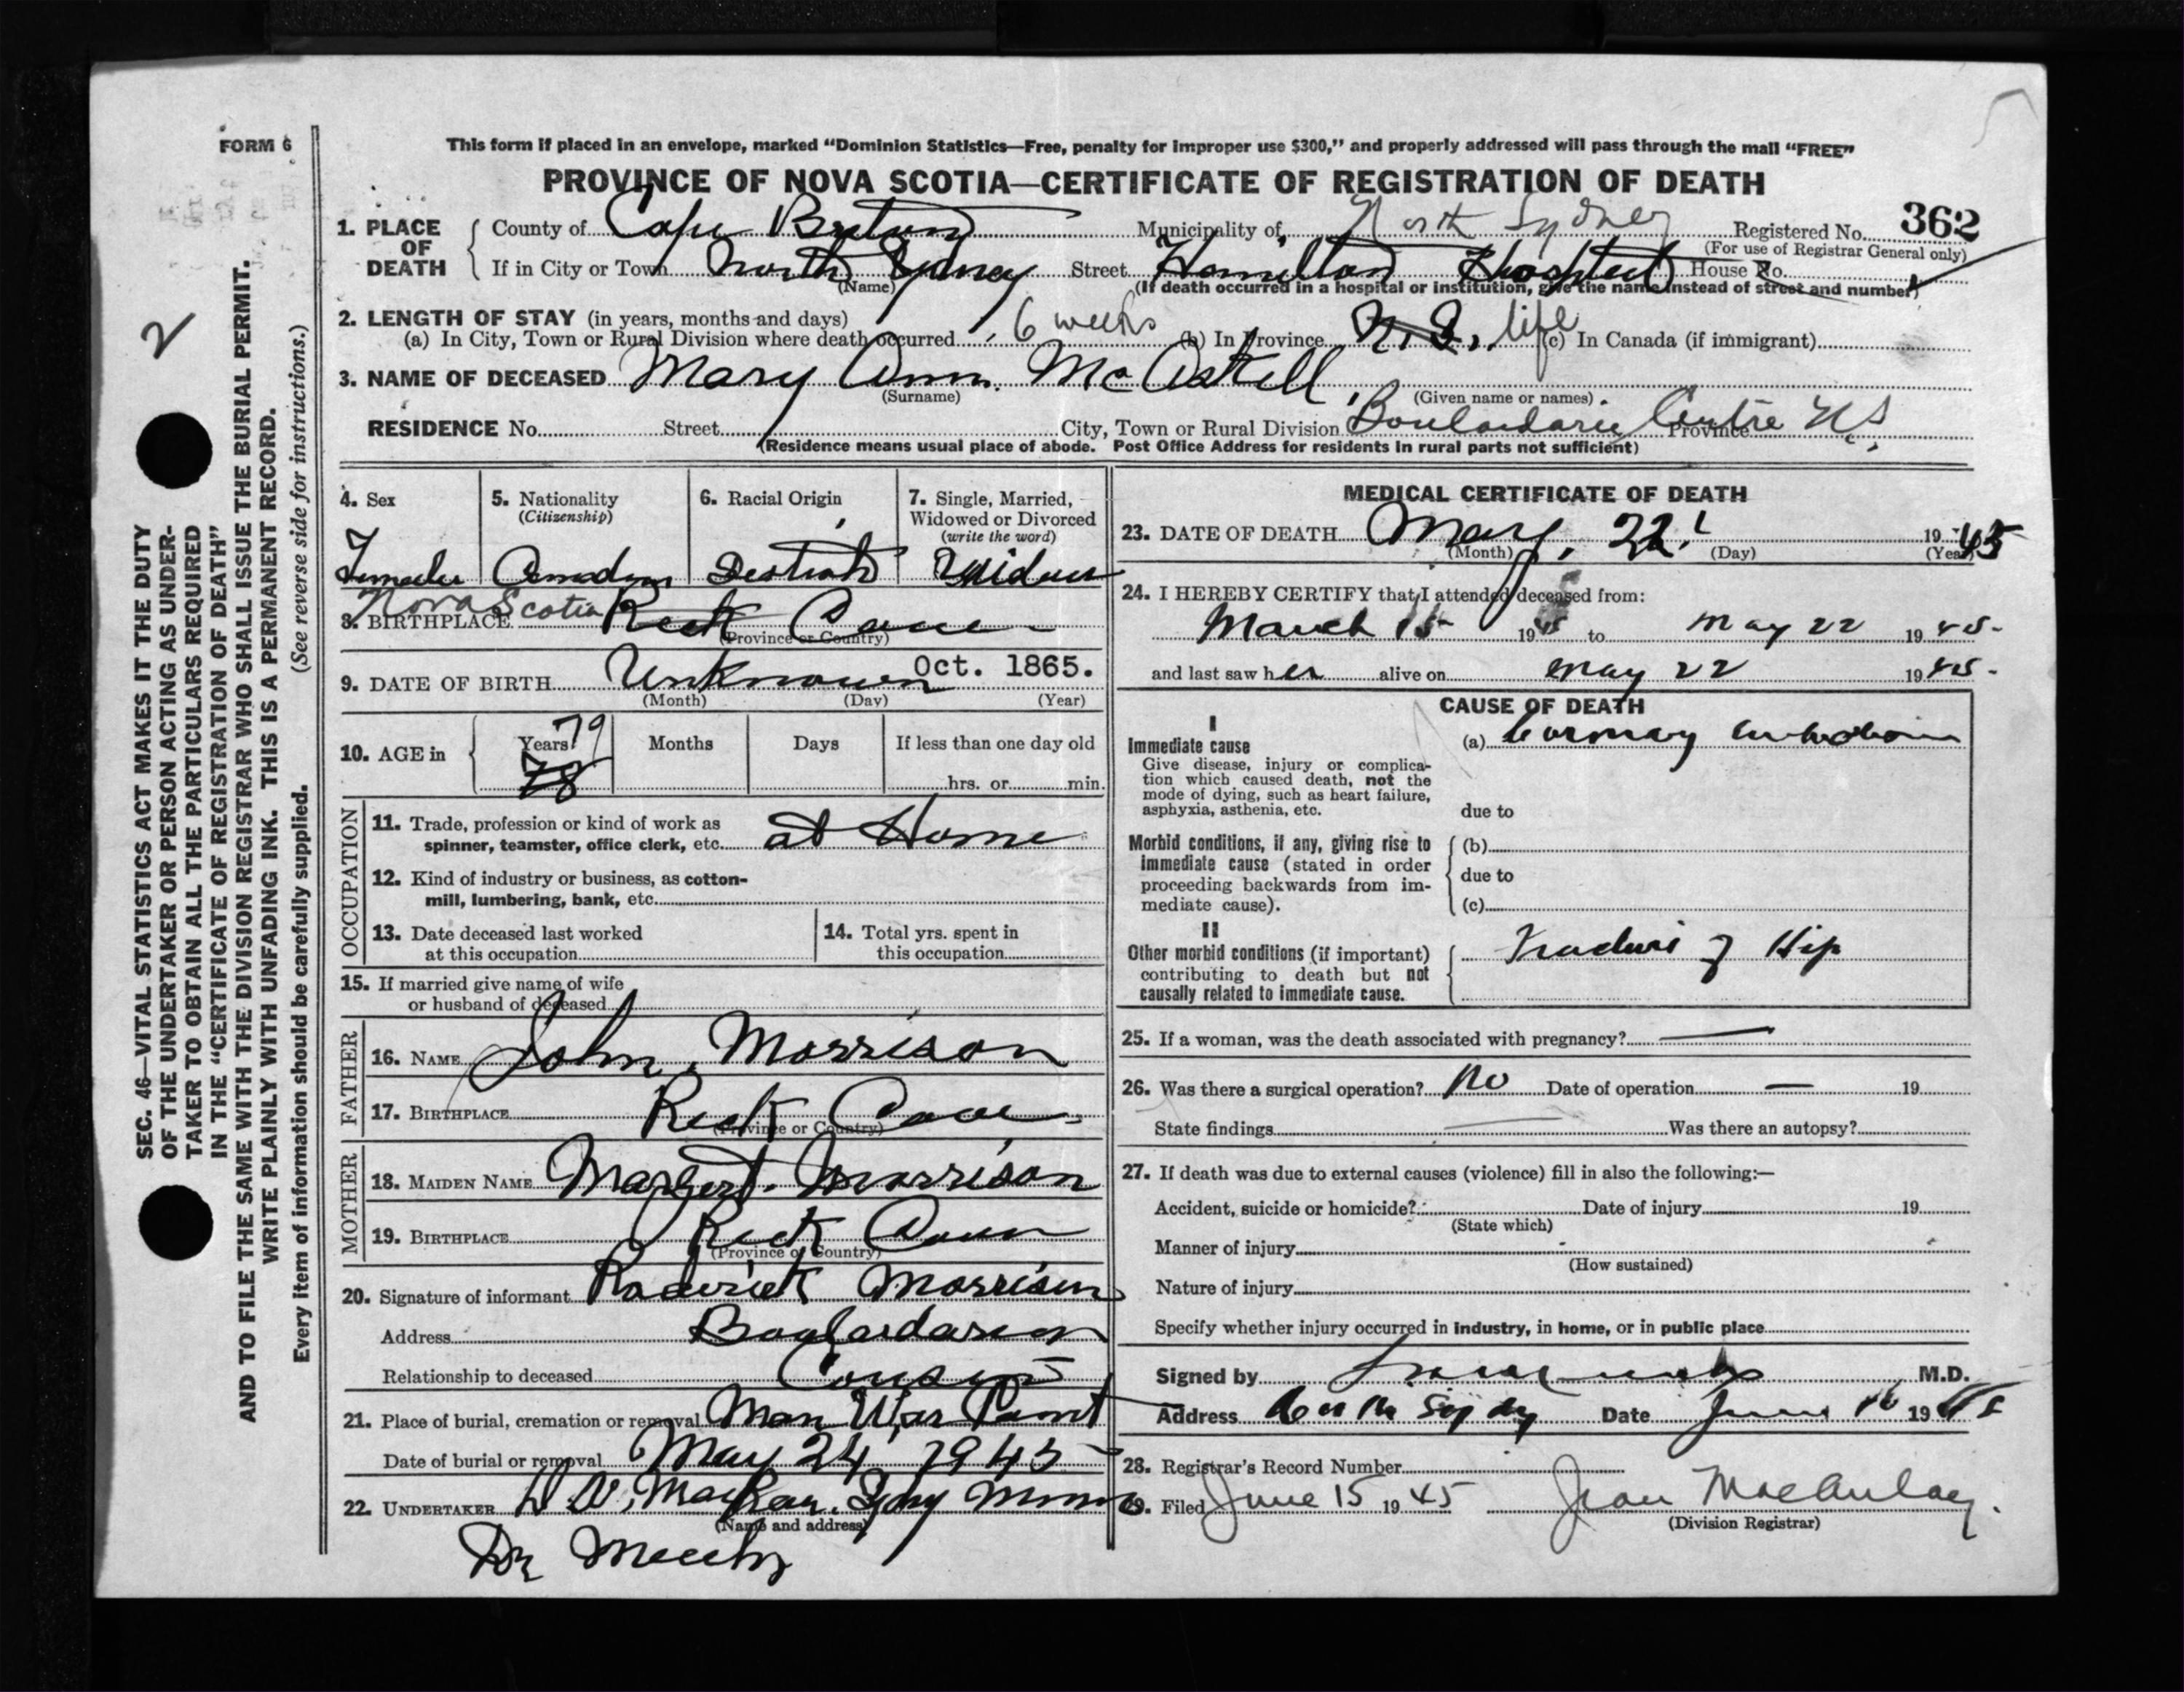 FORM 6
This form if placed in an envelope, marked “Dominion Statistics—Free, penalty for improper use $300,” and properly addressed will pass through the mail “FREE”
PROVINCE OF NOVA SCOTIA—CERTIFICATE OF REGISTRATION OF DEATH
1. PLACE OF DEATH
County of Cape Breton Municipality of North Sydney Registered No. 362
(For use of Registrar General only)
If in City or Town North Sydney Street Hamilton Hospital House No.
(Name) (If death occurred in a hospital or institution, give the name instead of street and number)
2. LENGTH OF STAY (in years, months and days)
(a) In City, Town or Rural Division where death occurred 6 weeks (b) In Province N.S. life (c) In Canada (if immigrant)
3. NAME OF DECEASED Mary Ann McAskell
(Surname) (Given name or names)
RESIDENCE No. Street City, Town or Rural Division Boulardarie Centre Province N.S.
(Residence means usual place of abode. Post Office Address for residents in rural parts not sufficient)
4. Sex
Female
5. Nationality
(Citizenship)
Canadian
6. Racial Origin
7. Single, Married, Widowed or Divorced
(write the word)
8. BIRTHPLACE Nova Scotia
(Province or Country)
9. DATE OF BIRTH Unknown Oct. 1865.
(Month) (Day) (Year)
10. AGE in
Years 79
78
Months Days If less than one day old
hrs. or min.
OCCUPATION
11. Trade, profession or kind of work as
spinner, teamster, office clerk, etc. at Home
12. Kind of industry or business, as cotton-
mill, lumbering, bank, etc.
13. Date deceased last worked
at this occupation
14. Total yrs. spent in
this occupation
15. If married give name of wife
or husband of deceased
FATHER
16. NAME John Morrison
17. BIRTHPLACE
(Province or Country)
MOTHER
18. MAIDEN NAME Margert Morrison
19. BIRTHPLACE
(Province or Country)
20. Signature of informant Roderick Morrison
Address
Relationship to deceased
21. Place of burial, cremation or removal Man War Point
Date of burial or removal May 24 1945
22. UNDERTAKER
(Name and address)
MEDICAL CERTIFICATE OF DEATH
23. DATE OF DEATH May, 22 1945
(Month) (Day) (Year)
24. I HEREBY CERTIFY that I attended deceased from:
March 15 1945 to May 22 1945
and last saw her alive on May 22 1945
CAUSE OF DEATH
I
Immediate cause
Give disease, injury or complica-
tion which caused death, not the
mode of dying, such as heart failure,
asphyxia, asthenia, etc.
(a)
due to
Morbid conditions, if any, giving rise to
immediate cause (stated in order
proceeding backwards from im-
mediate cause).
(b)
due to
(c)
II
Other morbid conditions (if important)
contributing to death but not
causally related to immediate cause.
of Hip
25. If a woman, was the death associated with pregnancy? —
26. Was there a surgical operation? No Date of operation — 19
State findings Was there an autopsy?
27. If death was due to external causes (violence) fill in also the following:—
Accident, suicide or homicide? Date of injury 19
(State which)
Manner of injury
(How sustained)
Nature of injury
Specify whether injury occurred in industry, in home, or in public place
Signed by M.D.
Address North Sydney Date June 1945
28. Registrar's Record Number
29. Filed June 15 1945 Jean MacAulay.
(Division Registrar)
2
SEC. 46—VITAL STATISTICS ACT MAKES IT THE DUTY
OF THE UNDERTAKER OR PERSON ACTING AS UNDER-
TAKER TO OBTAIN ALL THE PARTICULARS REQUIRED
IN THE “CERTIFICATE OF REGISTRATION OF DEATH”
AND TO FILE THE SAME WITH THE DIVISION REGISTRAR WHO SHALL ISSUE THE BURIAL PERMIT.
WRITE PLAINLY WITH UNFADING INK. THIS IS A PERMANENT RECORD.
Every item of information should be carefully supplied. (See reverse side for instructions.)